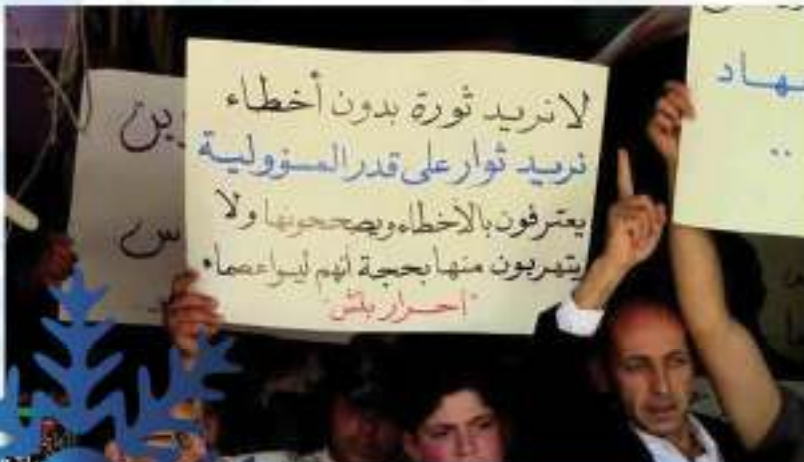 لا نريد ثورة بدون أخطاء
نريد ثوار على قدر المسؤولية
يعترفون بالأخطاء ويصححونها ولا
يتهربون منها بحجة أنهم ليسوا عصماء
"أحرار بنش"
هاد
..